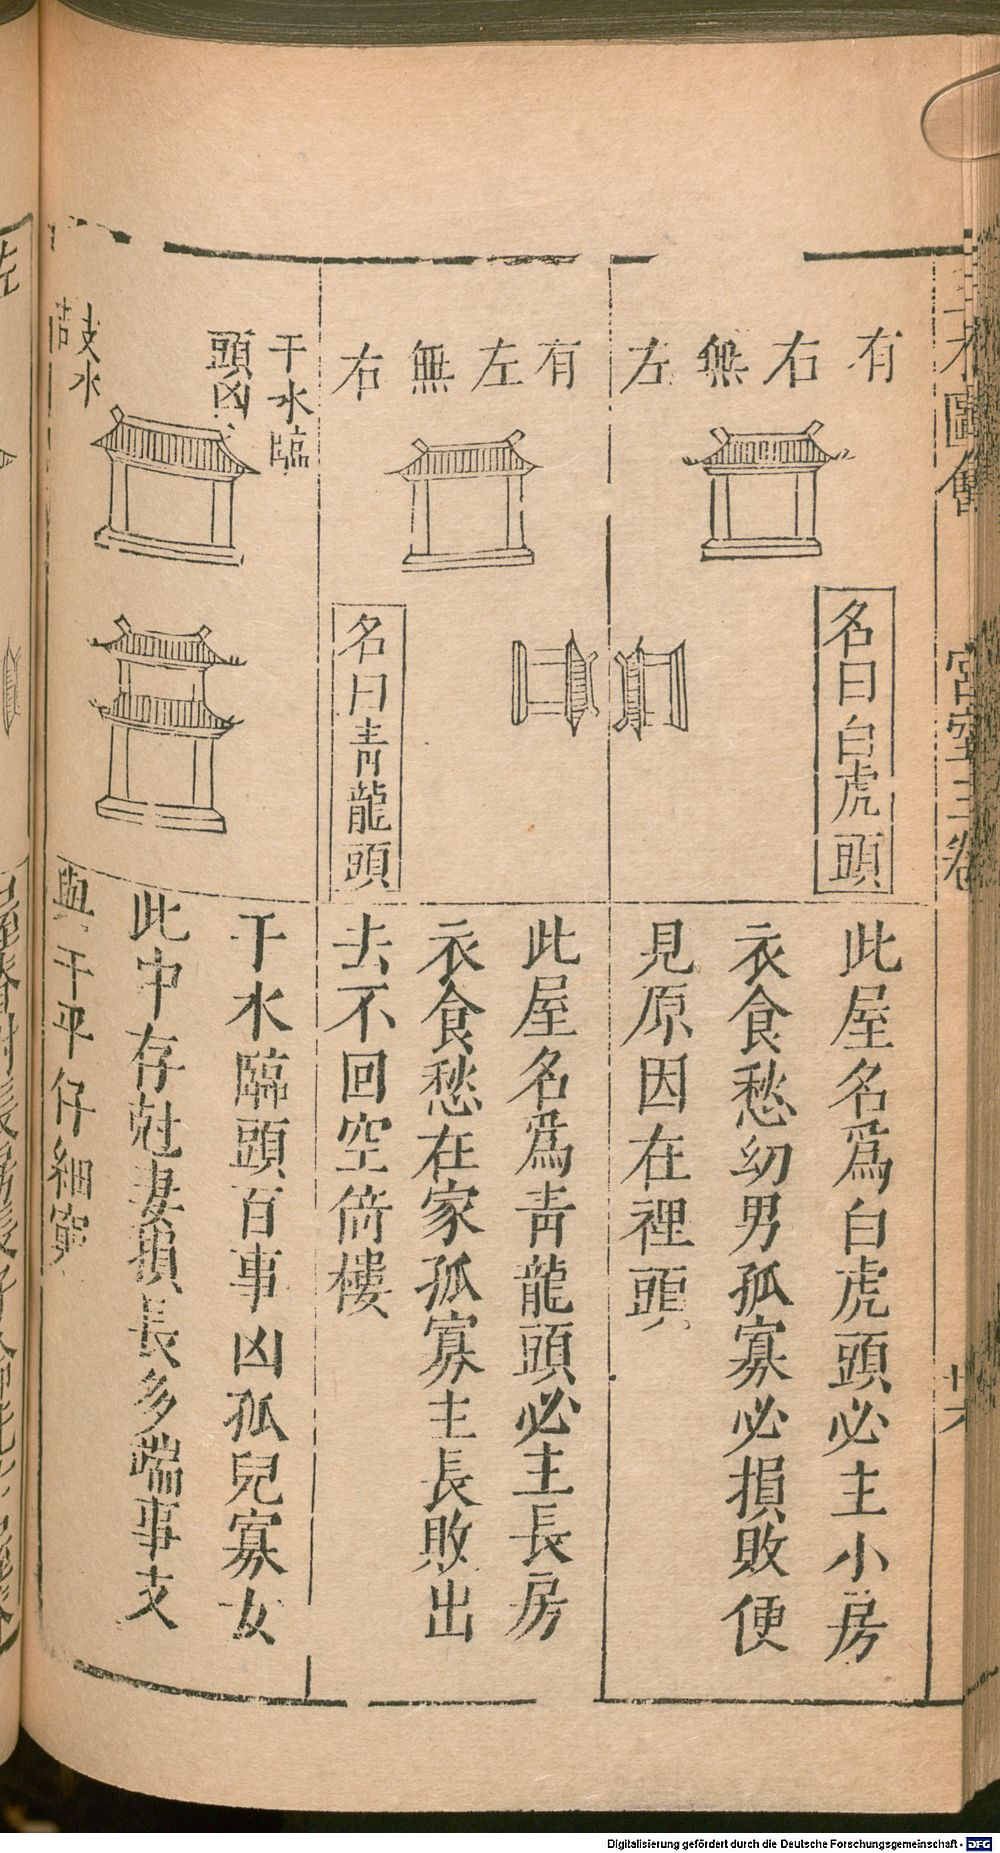 三才圖會 宮室三卷 廿六
有右無左
名曰白虎頭
此屋名爲白虎頭必主小房
衣食愁幼男孤寡必損敗便
見原因在裡頭
有左無右
名曰青龍頭
此屋名爲青龍頭必主長房
衣食愁在家孤寡主長敗出
去不回空倚樓
干水臨
頭凶
水
干水臨頭百事凶孤兒寡女
此中存尅妻損長多端事支
與干平仔細窮
左
Digitalisierung gefördert durch die Deutsche Forschungsgemeinschaft - DFG